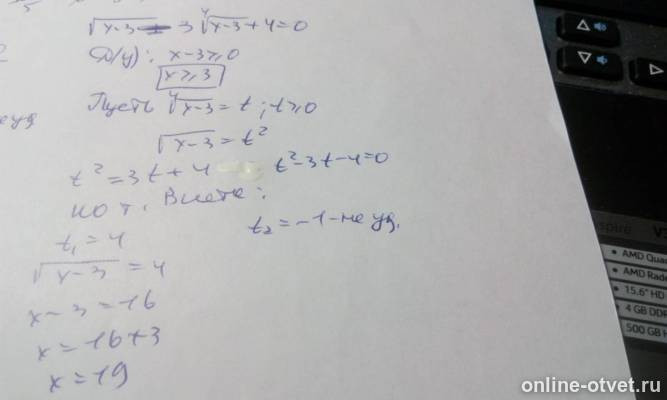 √x-3 = 3 ⁴√x-3 + 4 = 0
Д/у): x-3≥0
x≥3
Пусть ⁴√x-3 = t; t≥0
√x-3 = t²
t² = 3t + 4 t²-3t-4=0
по т. Виета:
t₁ = 4 t₂ = -1 - не уд.
√x-3 = 4
x-3 = 16
x = 16+3
x = 19
еуд
spire V3
AMD Quad
AMD Rade
15.6" HD
4 GB DDR
500 GB H
online-otvet.ru